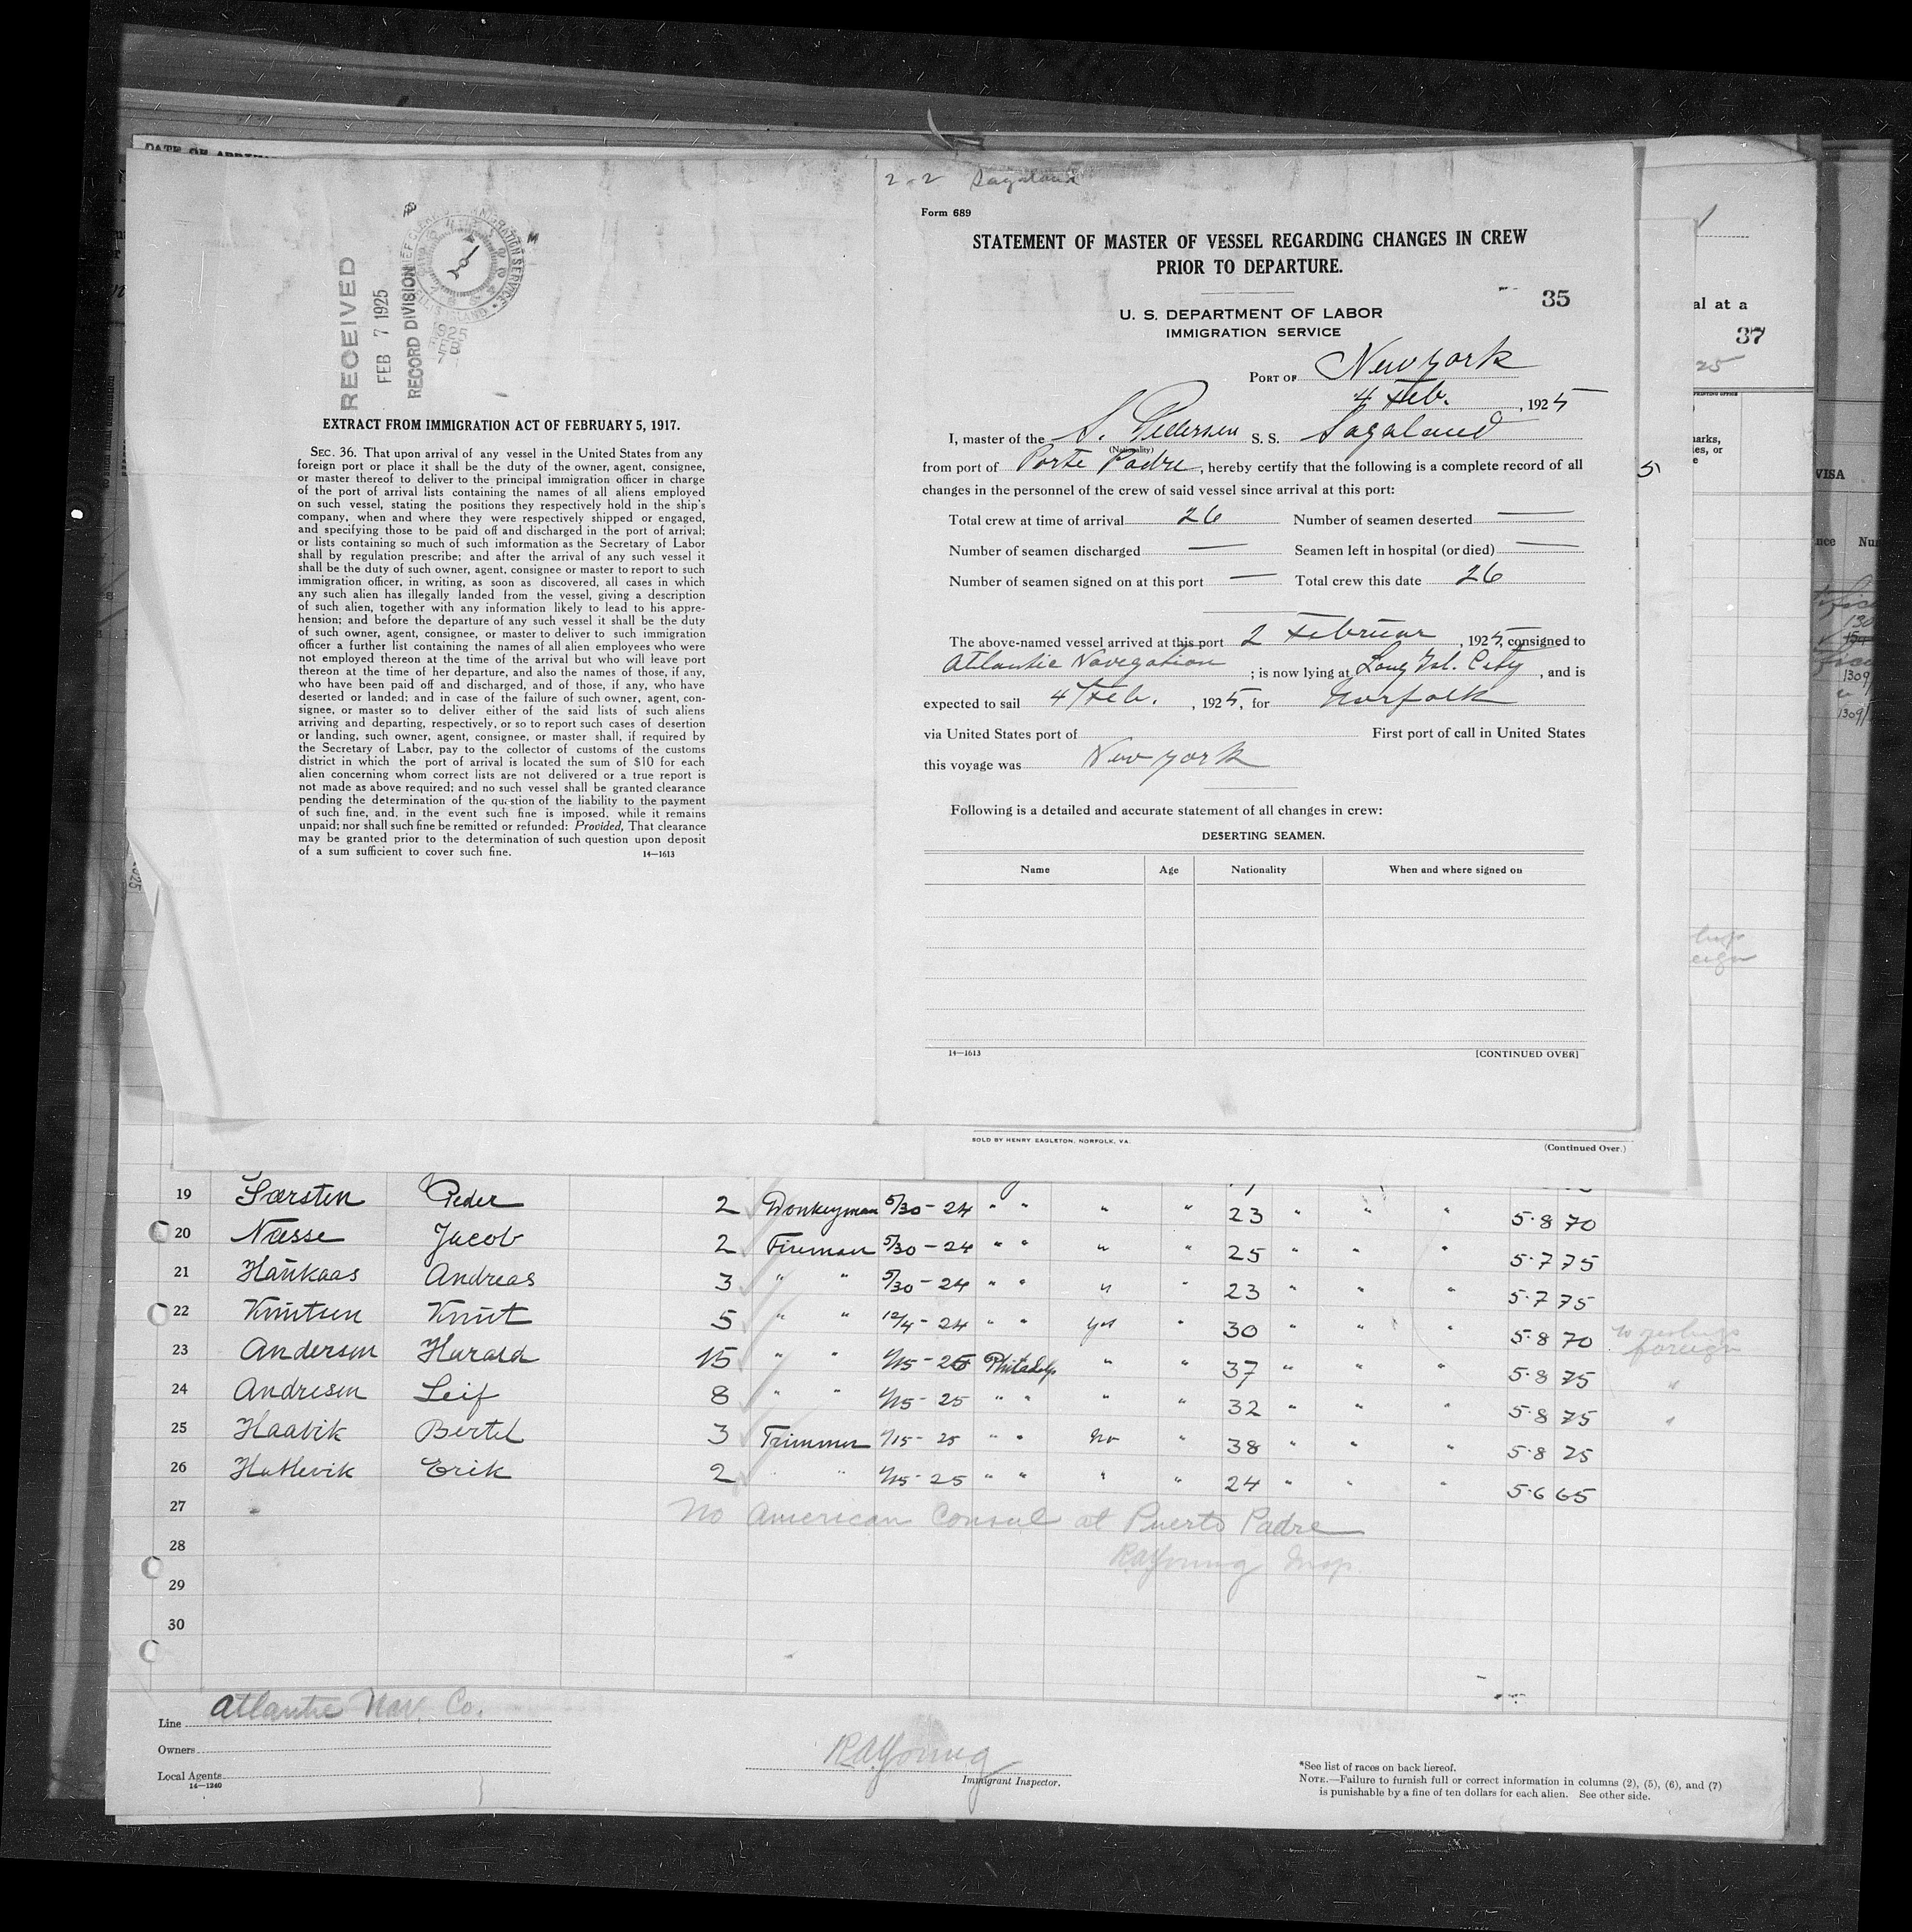 DATE OF
RECEIVED
FEB 7 1925
RECORD DIVISION
1925
FEB
EXTRACT FROM IMMIGRATION ACT OF FEBRUARY 5, 1917.
SEC. 36. That upon arrival of any vessel in the United States from any
foreign port or place it shall be the duty of the owner, agent, consignee,
or master thereof to deliver to the principal immigration officer in charge
of the port of arrival lists containing the names of all aliens employed
on such vessel, stating the positions they respectively hold in the ship's
company, when and where they were respectively shipped or engaged,
and specifying those to be paid off and discharged in the port of arrival;
or lists containing so much of such imformation as the Secretary of Labor
shall by regulation prescribe; and after the arrival of any such vessel it
shall be the duty of such owner, agent, consignee or master to report to such
immigration officer, in writing, as soon as discovered, all cases in which
any such alien has illegally landed from the vessel, giving a description
of such alien, together with any information likely to lead to his appre-
hension; and before the departure of any such vessel it shall be the duty
of such owner, agent, consignee, or master to deliver to such immigration
officer a further list containing the names of all alien employees who were
not employed thereon at the time of the arrival but who will leave port
thereon at the time of her departure, and also the names of those, if any,
who have been paid off and discharged, and of those, if any, who have
deserted or landed; and in case of the failure of such owner, agent, con-
signee, or master so to deliver either of the said lists of such aliens
arriving and departing, respectively, or so to report such cases of desertion
or landing, such owner, agent, consignee, or master shall, if required by
the Secretary of Labor, pay to the collector of customs of the customs
district in which the port of arrival is located the sum of $10 for each
alien concerning whom correct lists are not delivered or a true report is
not made as above required; and no such vessel shall be granted clearance
pending the determination of the question of the liability to the payment
of such fine, and, in the event such fine is imposed, while it remains
unpaid; nor shall such fine be remitted or refunded: Provided, That clearance
may be granted prior to the determination of such question upon deposit
of a sum sufficient to cover such fine. 14—1613
2-2 Sagaland
Form 689
STATEMENT OF MASTER OF VESSEL REGARDING CHANGES IN CREW
PRIOR TO DEPARTURE.
35
U. S. DEPARTMENT OF LABOR
IMMIGRATION SERVICE
PORT OF New york
4 Feb. , 1925
I, master of the S. Pedersen S. S. Sagaland
(Nationality)
from port of Porte Padre, hereby certify that the following is a complete record of all
changes in the personnel of the crew of said vessel since arrival at this port:
Total crew at time of arrival 26 Number of seamen deserted —
Number of seamen discharged — Seamen left in hospital (or died) —
Number of seamen signed on at this port — Total crew this date 26
The above-named vessel arrived at this port 2 Februar, 1925, consigned to
Atlantic Navegation ; is now lying at Long Isl. City, and is
expected to sail 4 Feb. , 1925, for Norfolk
via United States port of First port of call in United States
this voyage was New york
Following is a detailed and accurate statement of all changes in crew:
DESERTING SEAMEN.
Name Age Nationality When and where signed on
14—1613 [CONTINUED OVER]
al at a
37
25
VISA
SOLD BY HENRY EAGLETON, NORFOLK, VA. (Continued Over.)
19 Sørsten Peder 2 Donkeyman 5/30-24 " " " " 23 " " " 5·8 70
20 Næsse Jacob 2 Fireman 5/30-24 " " " " 25 " " " 5·7 75
21 Haukaas Andreas 3 " " 5/30-24 " " " " 23 " " " 5·7 75
22 Knutsen Knut 5 " " 12/4-24 " " yes " 30 " " " 5·8 70
23 Andersen Harald 15 " " 1/15-25 Philadelp " " 37 " " " 5·8 75
24 Andresen Leif 8 " " 1/15-25 " " " " 32 " " " 5·8 75 "
25 Haavik Bertel 3 Trimmer 1/15-25 " " No " 38 " " " 5·8 75 "
26 Hatlevik Erik 2 " " 1/15-25 " " " " 24 " " " 5·6 65
27 No American Consul at Puerto Padre
28 RAYoung Insp.
29
30
Line Atlantic Nav. Co.
Owners
Local Agents
14—1240
RAYoung
Immigrant Inspector.
*See list of races on back hereof.
NOTE.—Failure to furnish full or correct information in columns (2), (5), (6), and (7)
is punishable by a fine of ten dollars for each alien. See other side.